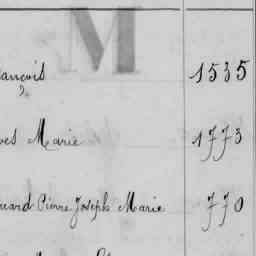 M
ançois 1535
ves Marie 1773
ouard Pierre Joseph Marie 770